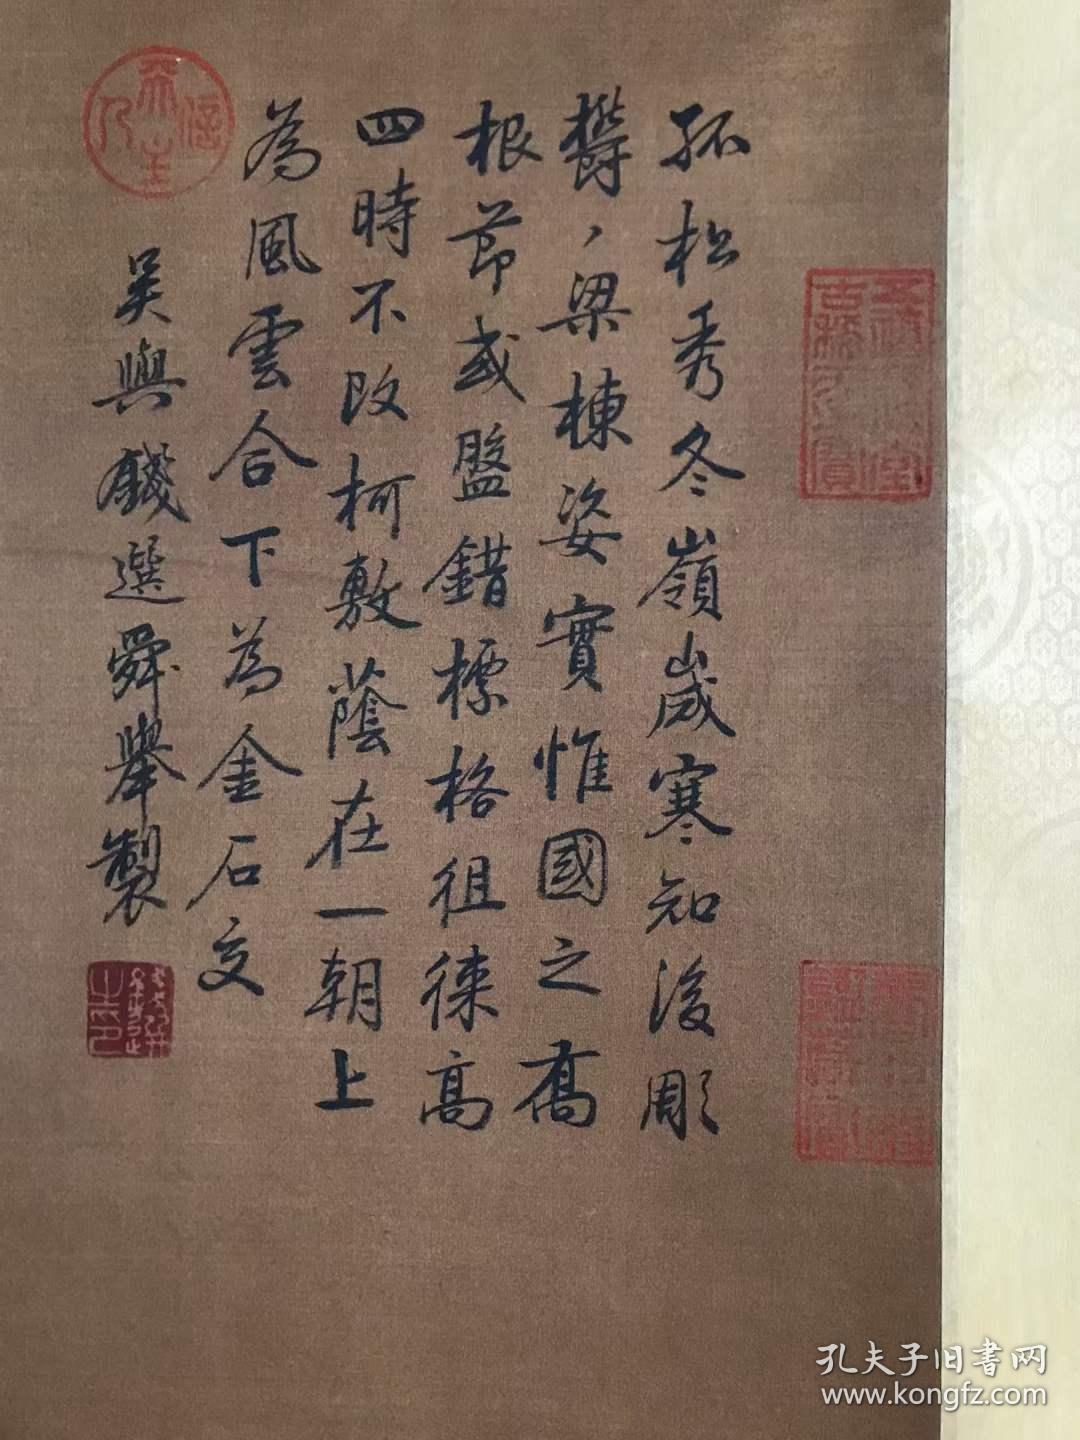 孤松秀冬嶺歲寒知後彫
欝丶梁棟姿實惟國之喬
根節或盤錯標格徂徠高
四時不改柯敷蔭在一朝上
為風雲合下為金石交
吳興錢選舜舉製
孔夫子旧書网
www.kongfz.com